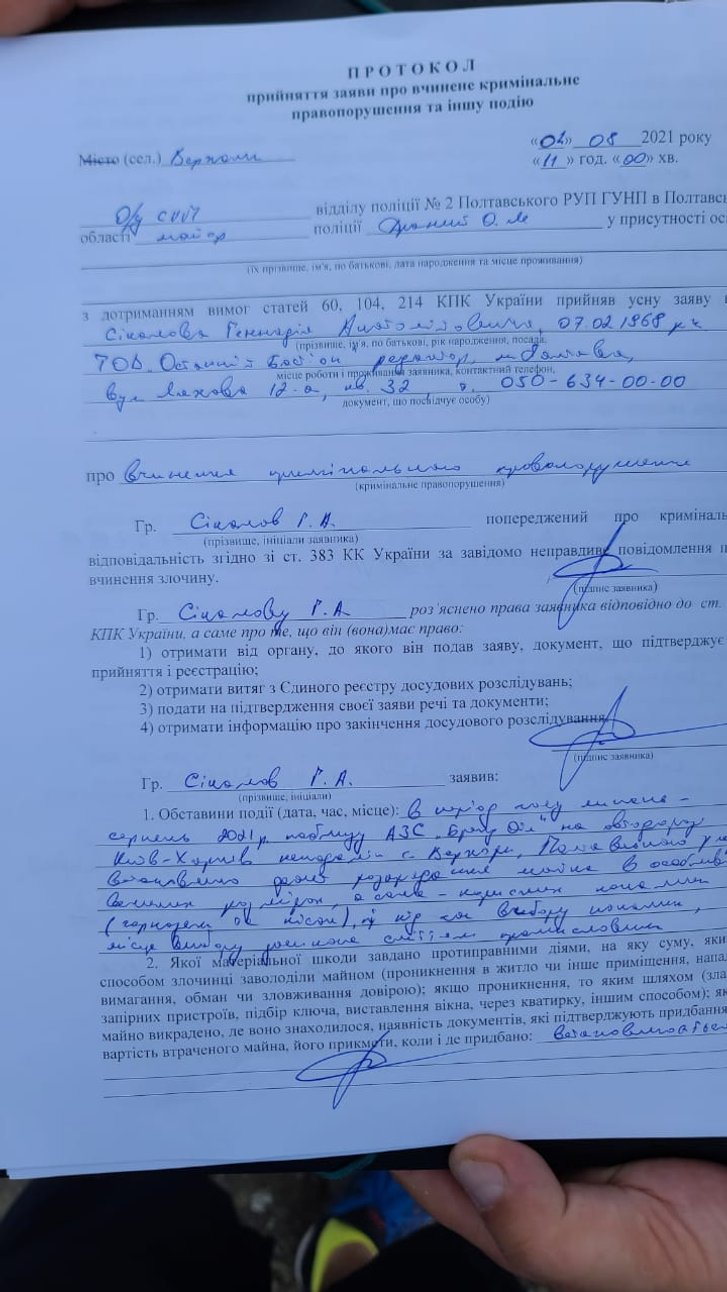 П Р О Т О К О Л
прийняття заяви про вчинене кримінальне
правопорушення та іншу подію
«04» 08 2021 року
Місто (сел.)
«11» год. «00» хв.
відділу поліції № 2 Полтавського РУП ГУНП в Полтавсь
області майор поліції О. М у присутності ос
(їх прізвище, ім'я, по батькові, дата народження та місце проживання)
з дотриманням вимог статей 60, 104, 214 КПК України прийняв усну заяву
Сікалова Геннадія Анатолійовича, 07.02.1968 р.н
(прізвище, ім'я, по батькові, рік народження, посада,
ТОВ. Останній Бастіон редактор, м. Полтава,
місце роботи і проживання заявника, контактний телефон,
вул 12-а, кв. 32, т. 050-634-00-00
документ, що посвідчує особу)
про вчинення кримінального правопорушення
(кримінальне правопорушення)
Гр. Сікалов Г. А. попереджений про криміналь
(прізвище, ініціали заявника)
відповідальність згідно зі ст. 383 КК України за завідомо неправдиве повідомлення п
вчинення злочину.
(підпис заявника)
Гр. Сікалову Г. А. роз'яснено права заявника відповідно до ст.
КПК України, а саме про те, що він (вона)має право:
1) отримати від органу, до якого він подав заяву, документ, що підтверджує
прийняття і реєстрацію;
2) отримати витяг з Єдиного реєстру досудових розслідувань;
3) подати на підтвердження своєї заяви речі та документи;
4) отримати інформацію про закінчення досудового розслідування.
(підпис заявника)
Гр. Сікалов Г. А. заявив:
(прізвище, ініціали)
1. Обставини події (дата, час, місце): в період часу липень -
серпень 2021 р. поблизу АЗС на автодорозі
Київ-Харків неподалік с.
встановлено розкрадання майна в особливо
великих розмірах, а саме - корисних копалин
місце
2. Якої матеріальної шкоди завдано протиправними діями, на яку суму, яки
способом злочинці заволоділи майном (проникнення в житло чи інше приміщення, напад
вимагання, обман чи зловживання довірою); якщо проникнення, то яким шляхом (зла
запірних пристроїв, підбір ключа, виставлення вікна, через кватирку, іншим способом); як
майно викрадено, де воно знаходилося, наявність документів, які підтверджують придбання
вартість втраченого майна, його прикмети, коли і де придбано: встановлюється